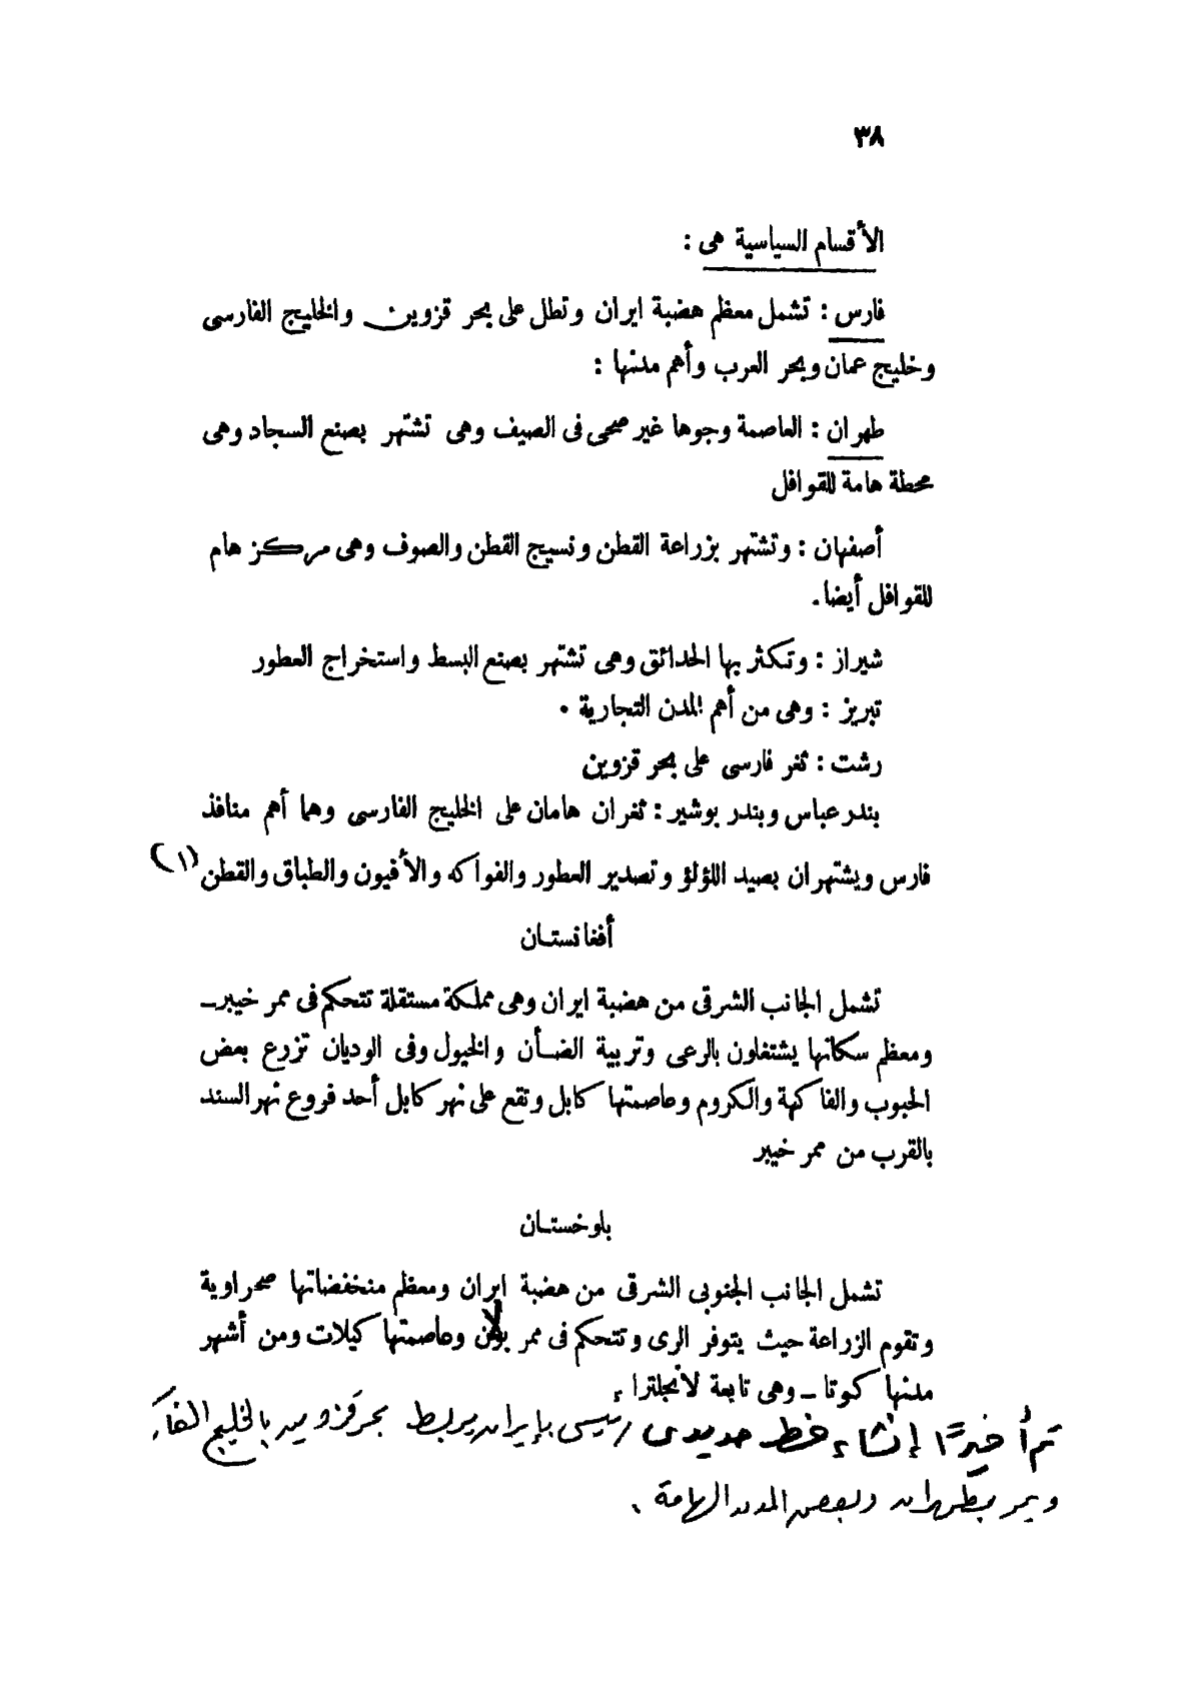 ٣٨
الأقسام السياسية هى :
فارس : تشمل معظم هضبة ايران وتطل على بحر قزوين والخليج الفارسى
وخليج عمان وبحر العرب وأهم مدنها :
طهران : العاصمة وجوها غير صحى فى الصيف وهى تشتهر بصنع السجاد وهى
محطة هامة للقوافل
أصفهان : وتشتهر بزراعة القطن ونسيج القطن والصوف وهى مركز هام
للقوافل أيضا .
شيراز : وتكثر بها الحدائق وهى تشتهر بصنع البسط واستخراج العطور
تبريز : وهى من أهم المدن التجارية .
رشت : ثغر فارسى على بحر قزوين
بندر عباس وبندر بوشير : ثغران هامان على الخليج الفارسى وهما أهم منافذ
فارس ويشتهران بصيد اللؤلؤ وتصدير العطور والفواكه والأفيون والطباق والقطن (١)
أفغانستان
تشمل الجانب الشرقى من هضبة ايران وهى مملكة مستقلة تتحكم فى ممر خيبر ــ
ومعظم سكانها يشتغلون بالرعى وتربية الضأن والخيول وفى الوديان تزرع بعض
الحبوب والفاكهة والكروم وعاصمتها كابل وتقع على نهر كابل أحد فروع نهر السند
بالقرب من ممر خيبر
بلوخستان
تشمل الجانب الجنوبى الشرقى من هضبة ايران ومعظم منخفضاتها صحراوية
وتقوم الزراعة حيث يتوفر الرى وتتحكم فى ممر بولان وعاصمتها كيلات ومن أشهر
مدنها كوتا ــ وهى تابعة لانجلترا .
تم أخيرًا إنشاء خط حديدى رئيسى بإيران يربط بحر قزوين بالخليج
ويمر بطهران وبعض المدن الهامة .